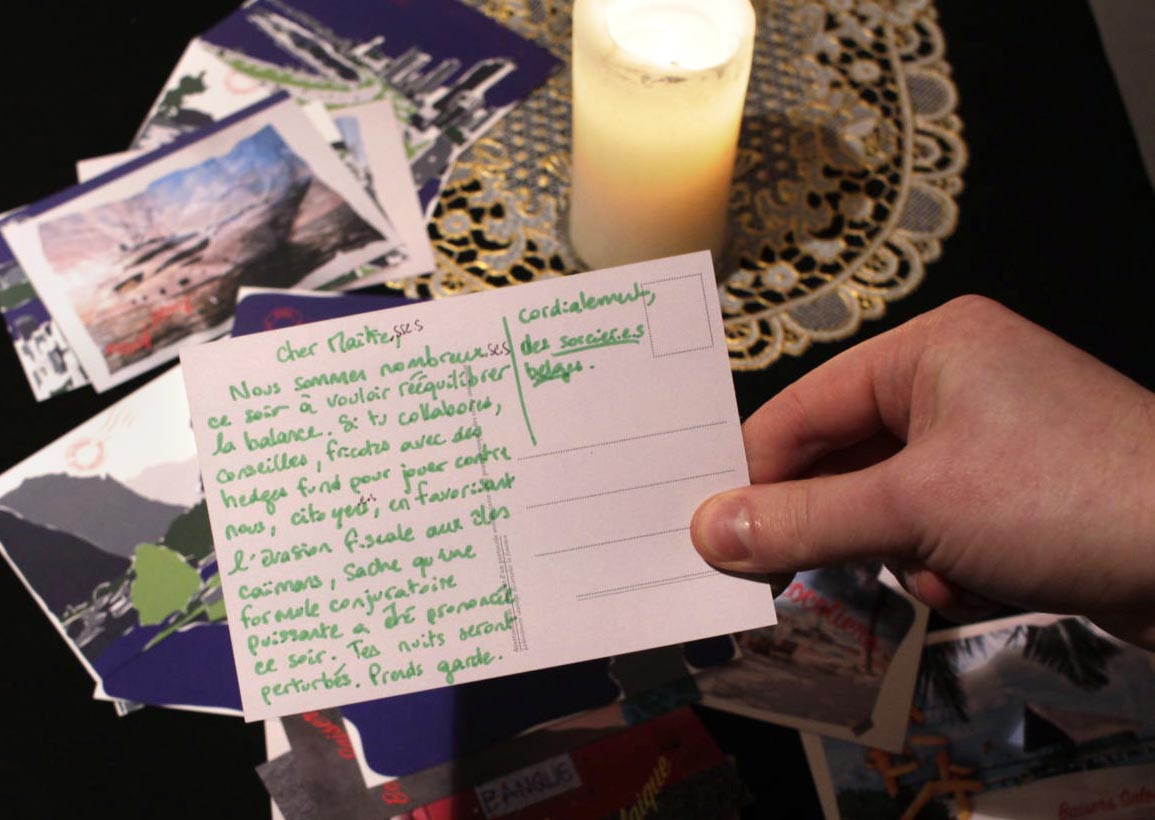 Cher Maître.sses
Nous sommes nombreux.ses
ce soir à vouloir rééquilibrer
la balance. Si tu collabores,
conseilles, fricotes avec des
hedges fund pour jouer contre
nous, citoyens, en favorisant
l'évasion fiscale aux îles
caïmans, sache qu'une
formule conjuratoire
puissante a été prononcée
ce soir. Tes nuits seront
perturbés. Prends garde.
cordialement,
des sorcier.e.s
belges.
BANQUE